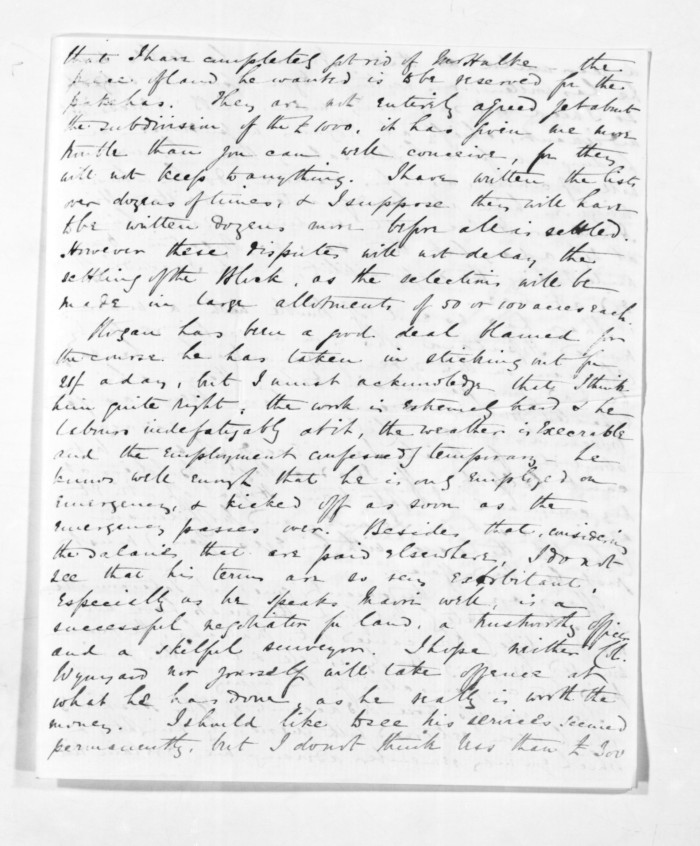 that I have completely got rid of Mr Halse the
piece of land he wanted is to be reserved for the
pakehas. They are not entirely agreed yet about
the subdivision of the £1000, it has given me more
trouble than you can well conceive, for they
will not keep to anything. I have written the lists
over dozens of times, & I suppose they will have
to be written dozens more before all is settled.
However these disputes will not delay the
settling of the Block, as the selections will be
made in large allotments of 50 or 100 acres each.
Hogan has been a good deal blamed for
the course he has taken in sticking out for
21/ a day, but I must acknowledge that I think
him quite right; the work is extremely hard & he
labours indefatigably at it, the weather is execrable
and the employment confessedly temporary – he
knows well enough that he is only employed on
emergency, & kicked off as soon as the
emergency passes over. Besides that, considering
the salaries that are paid elsewhere, I do not
see that his terms are so very exhorbitant,
Especially as he speaks Maori well, is a
successful negotiator for land, a trustworthy officer
and a skilful surveyor. I hope neither Col.
Wynyard nor yourself will take offence at
what he has done, as he really is worth the
money. I should like to see his services secured
permanently, but I do not think less than £